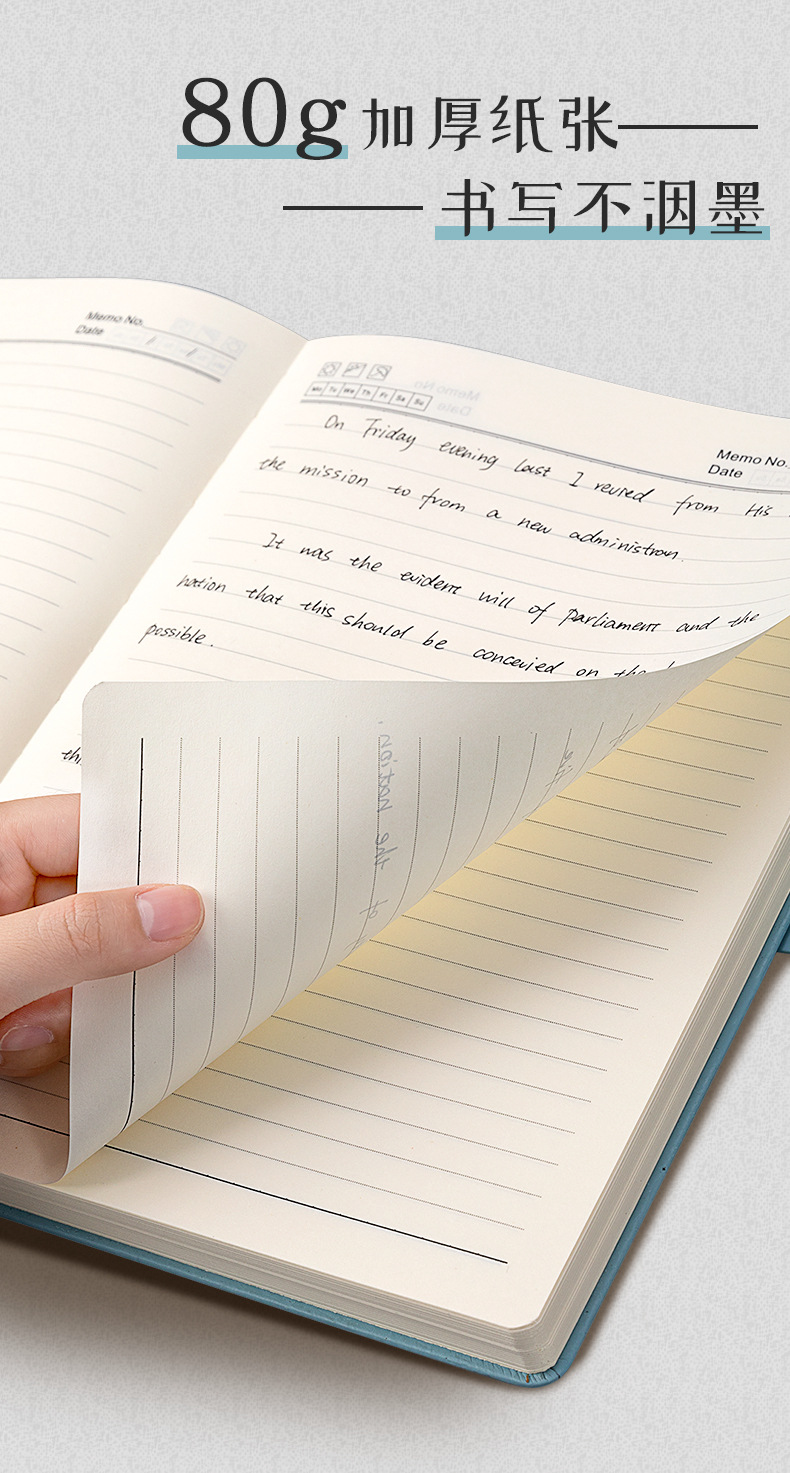 80g加厚纸张——
——书写不洇墨
Memo No.
Date
Mo Tu We Th Fr Sa Su
Memo No.
Date
On Friday evening last I revired from His
the mission to from a new administraon.
It was the evident will of parliament and the
nation that this should be concevied on the
possible.